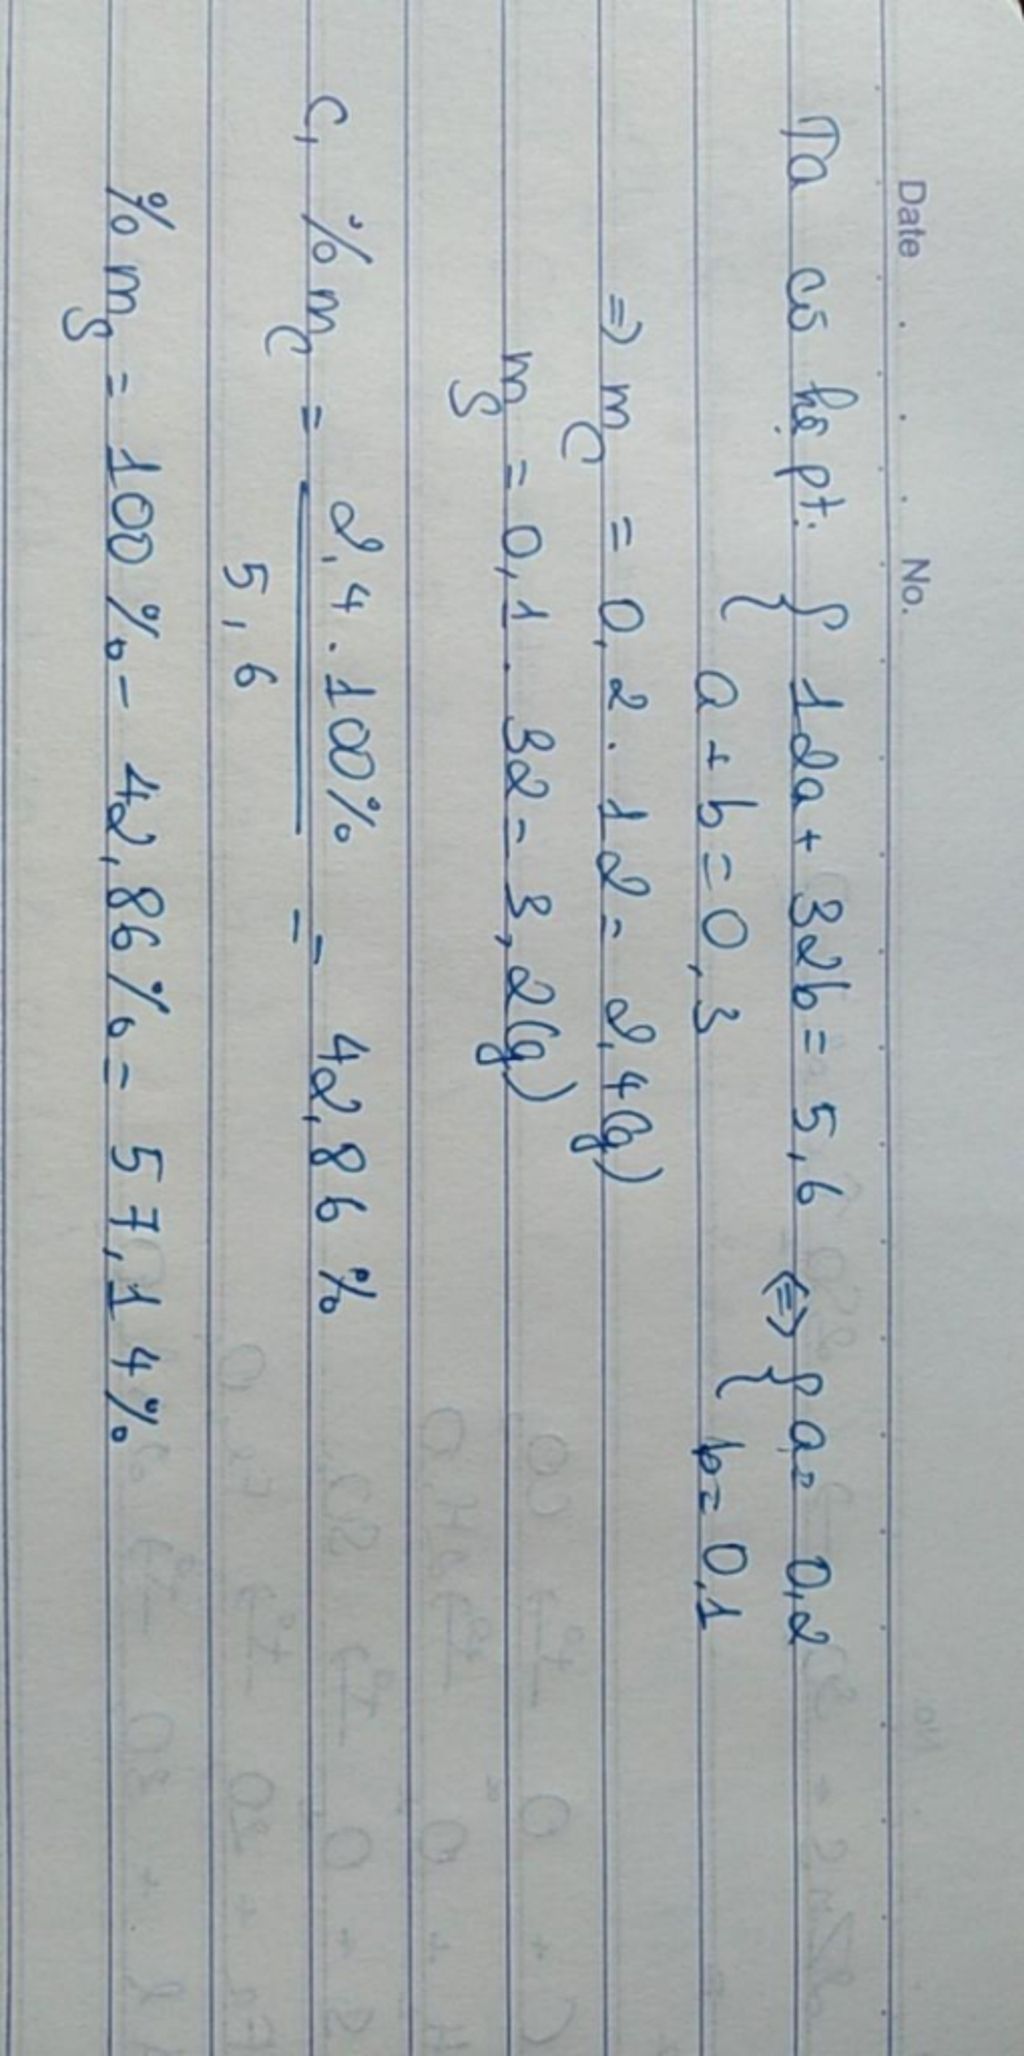 Date . . . No.
Ta có hệ pt: { 12a + 32b = 5,6 <=> { a = 0,2
{ a + b = 0,3 { b = 0,1
=> mC = 0,2 . 12 = 2,4(g)
mS = 0,1 . 32 = 3,2(g)
c, % mC = 2,4 . 100% / 5,6 = 42,86 %
% mS = 100 % - 42,86% = 57,14%